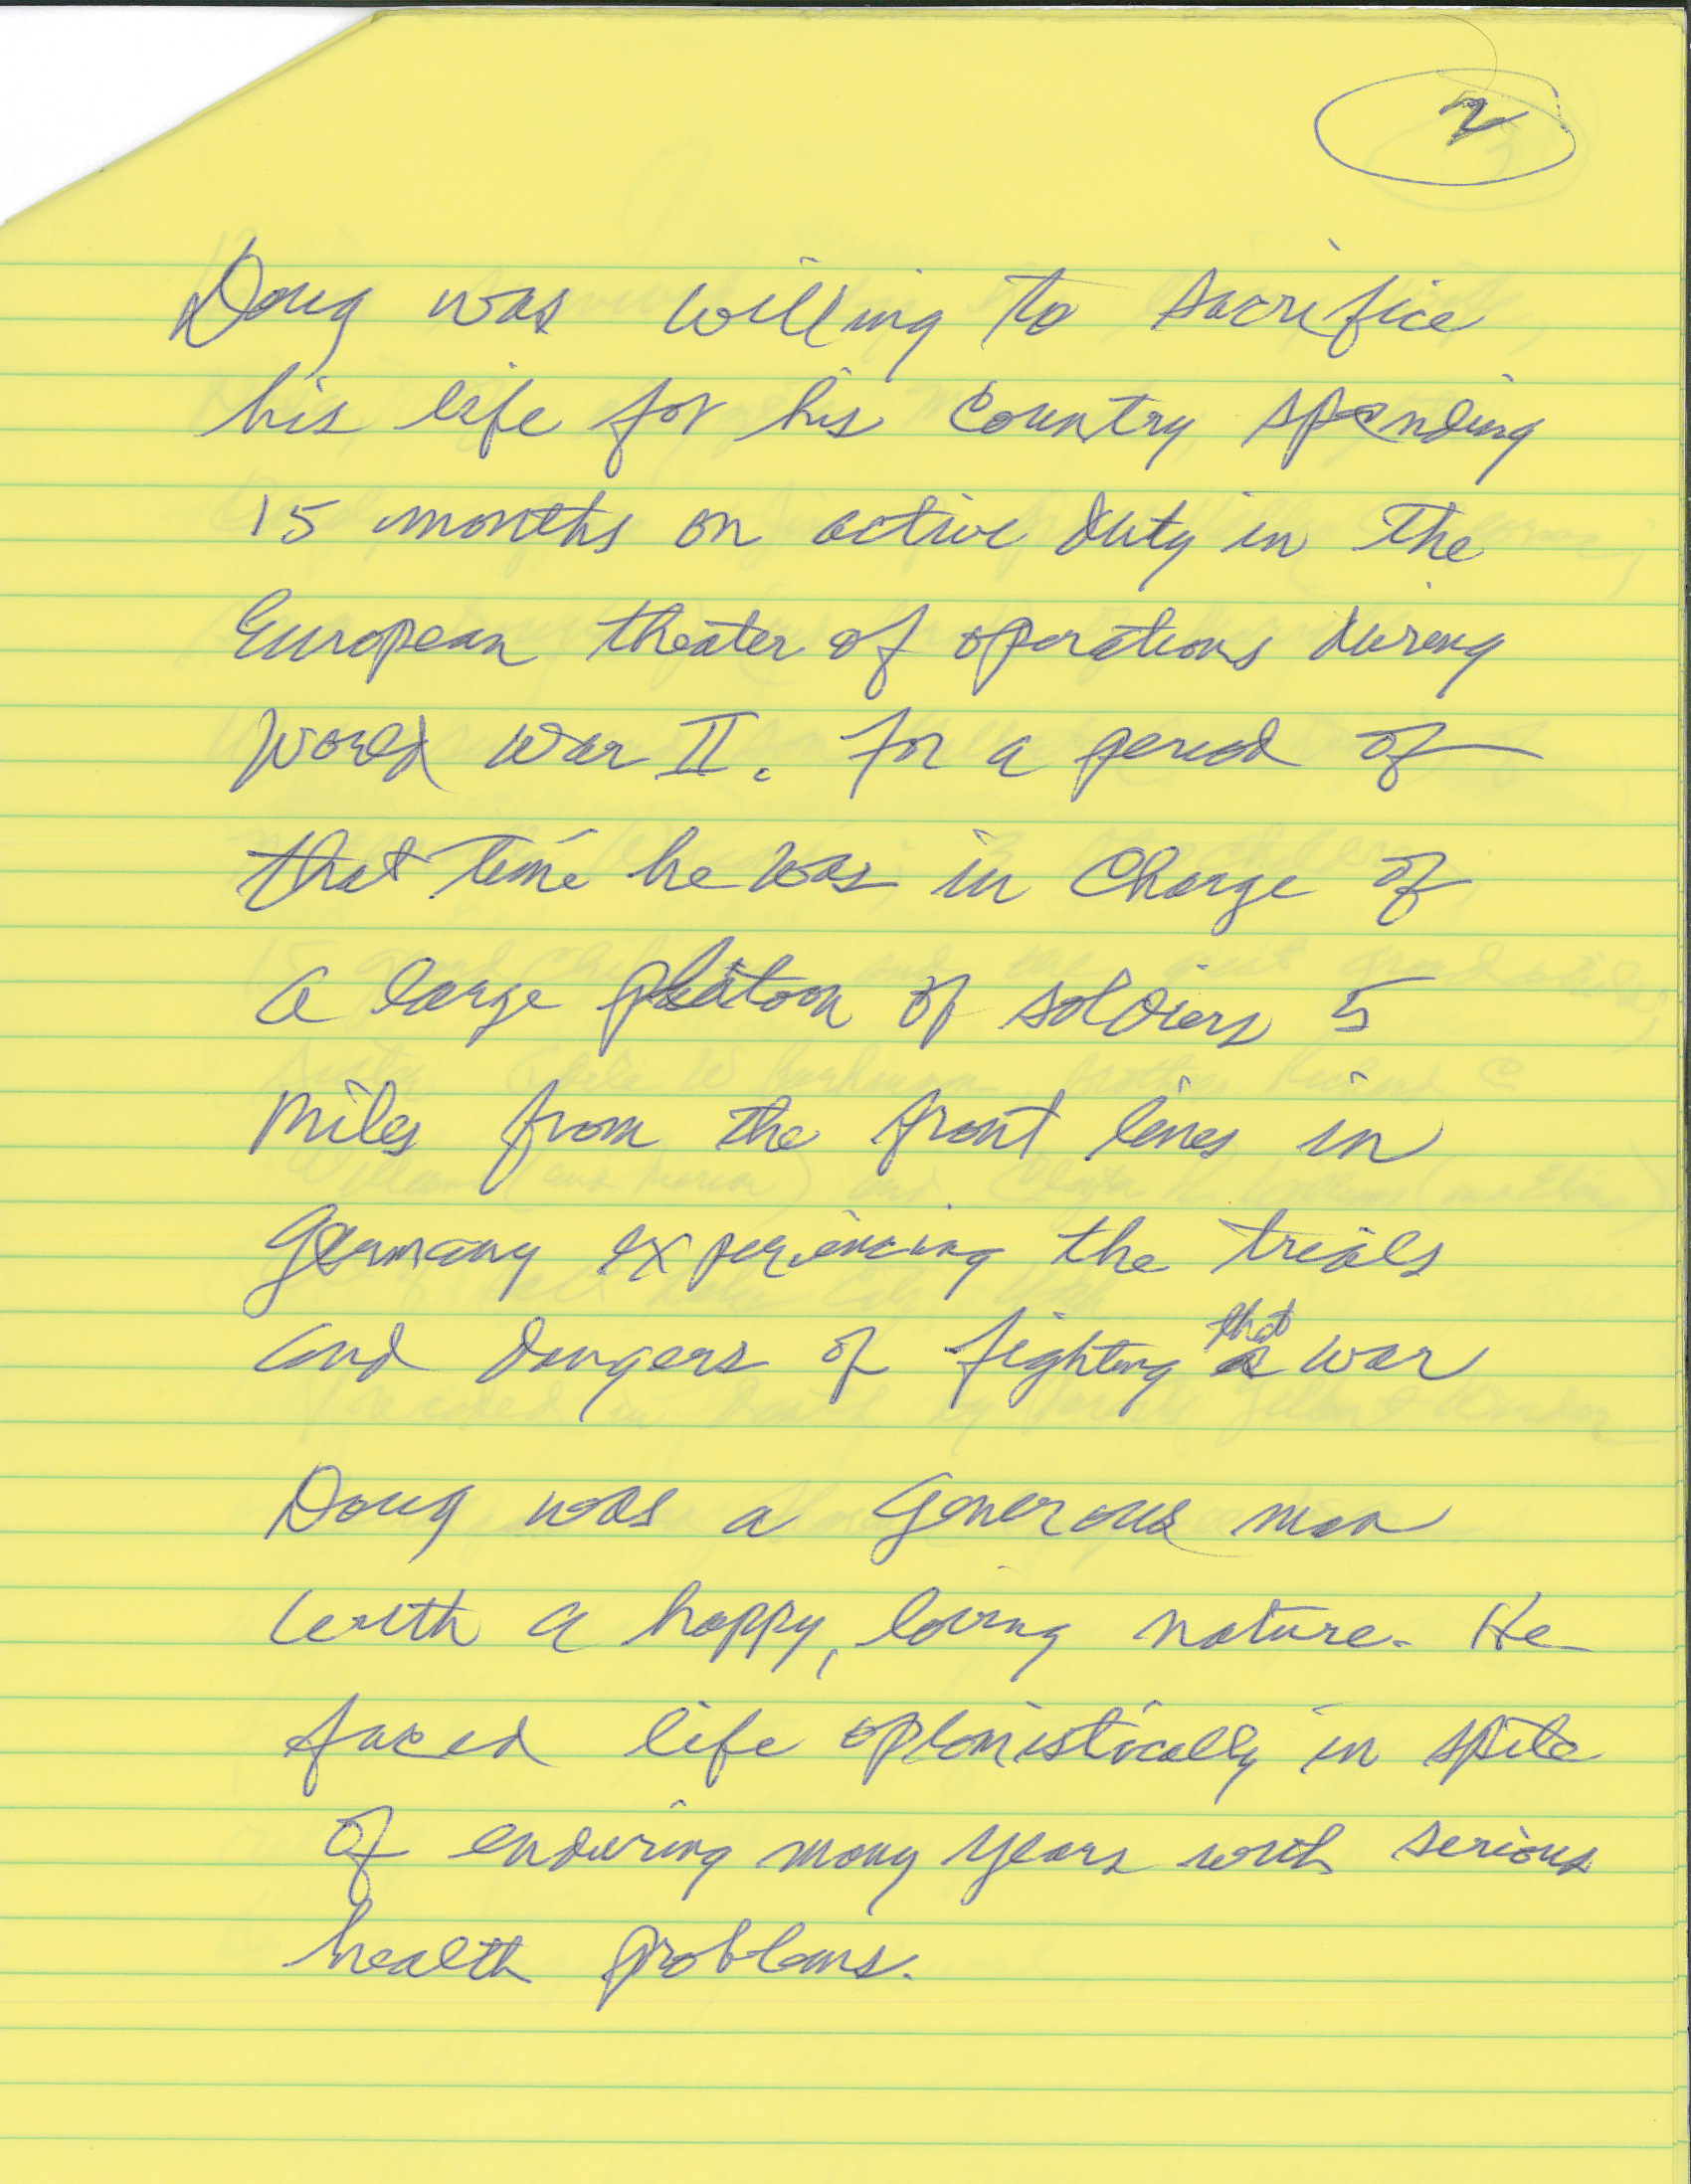 2
Doug was willing to sacrifice
his life for his country, spending
15 months on active duty in the
European theater of operations during
World War II. For a period of
that time he was in charge of
a large platoon of soldiers 5
miles from the front lines in
Germany experiencing the trials
that
and dangers of fighting a war
Doug was a generous man
with a happy, loving nature. He
faced life optomistically in spite
of enduring many years with serious
health problems.